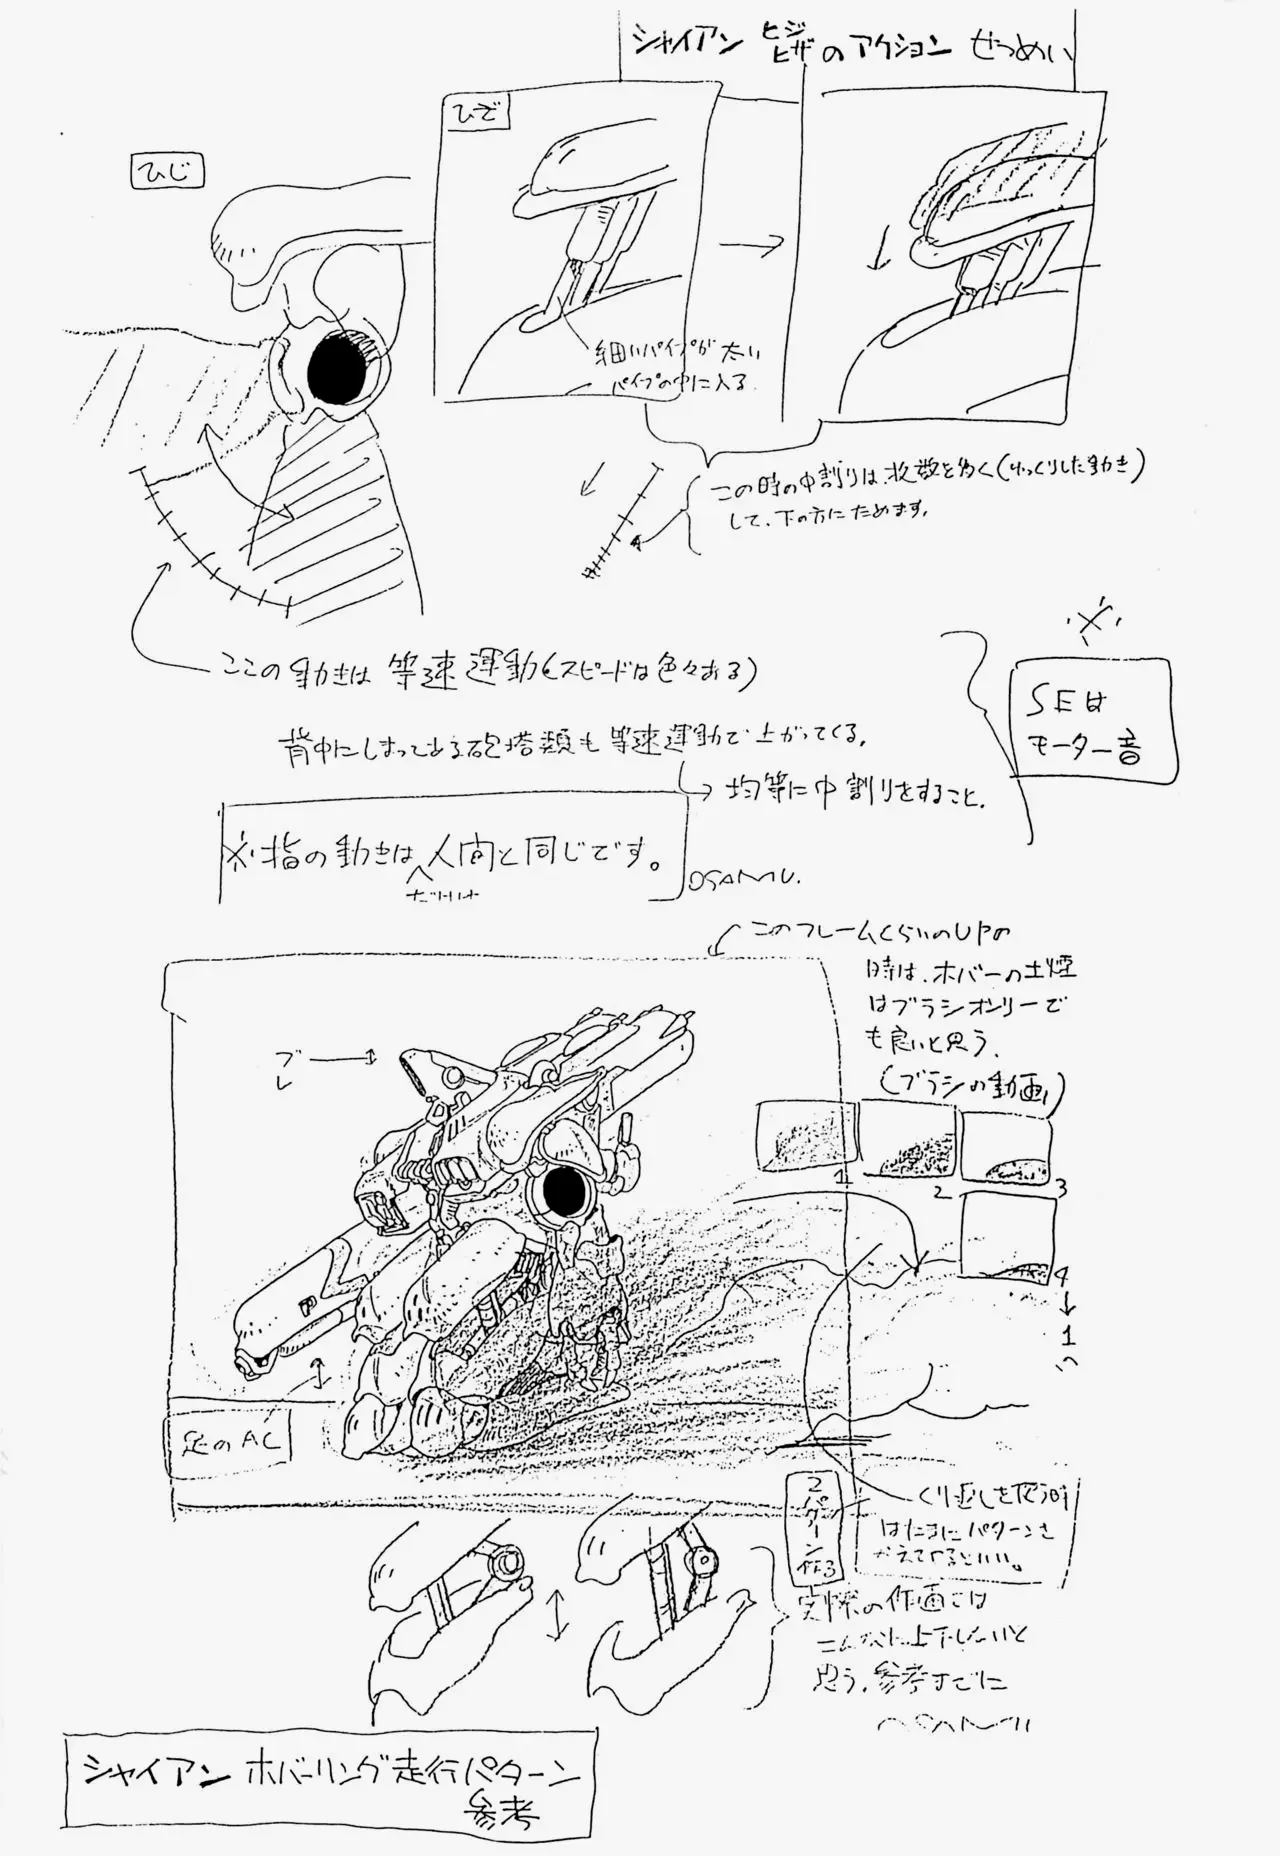 シャイアン ヒジ ヒザ のアクション せつめい
ひざ
ひじ
細いパイプが 太い
パイプの中に入る
この時の中割りは、枚数を多く(ゆっくりした動き)
して、下の方にためます。
ここの動きは 等速運動(スピードは色々ある)
SEは
モーター音
背中にしまってある砲塔類も 等速運動で 上がってくる。
均等に中割りをすること。
※指の動きは 人間と同じです。
だけは
OSAMU.
このフレームくらいのUPの
時は、ホバーの土煙
はブラシオンリーで
も良いと思う。
(ブラシの動画)
ブレ
1
2
3
4
1
足のAC
2パターン
くり返しを使う時
はたまにパターンを
かえてやるといい。
実際の作画では
こんなに上下しないと
思う、参考までに
OSAMU
シャイアン ホバーリング走行パターン
参考